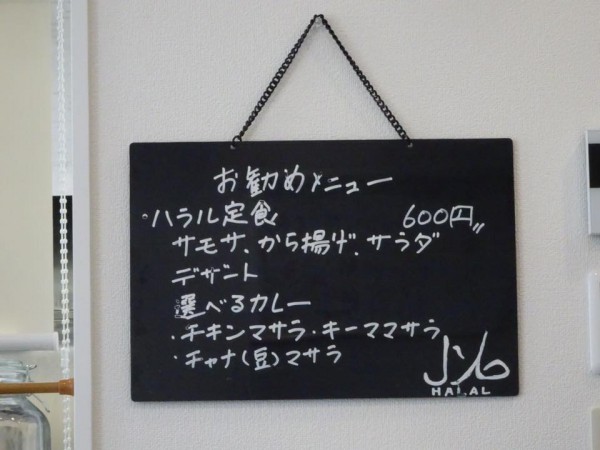 お勧めメニュー
・ハラル定食 600円〃
サモサ、から揚げ、サラダ
デザート
選べるカレー
・チキンマサラ・キーママサラ
・チャナ(豆)マサラ
حلال
HALAL